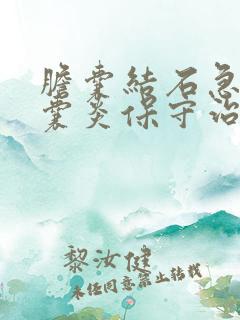 膽囊結石急
囊炎保守治
黎汝健
未经同意禁止转载